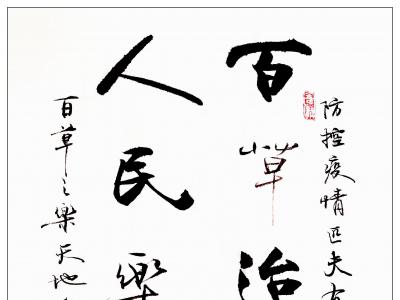 防控疫情匹夫有
百草治
人民樂
百草之樂天地